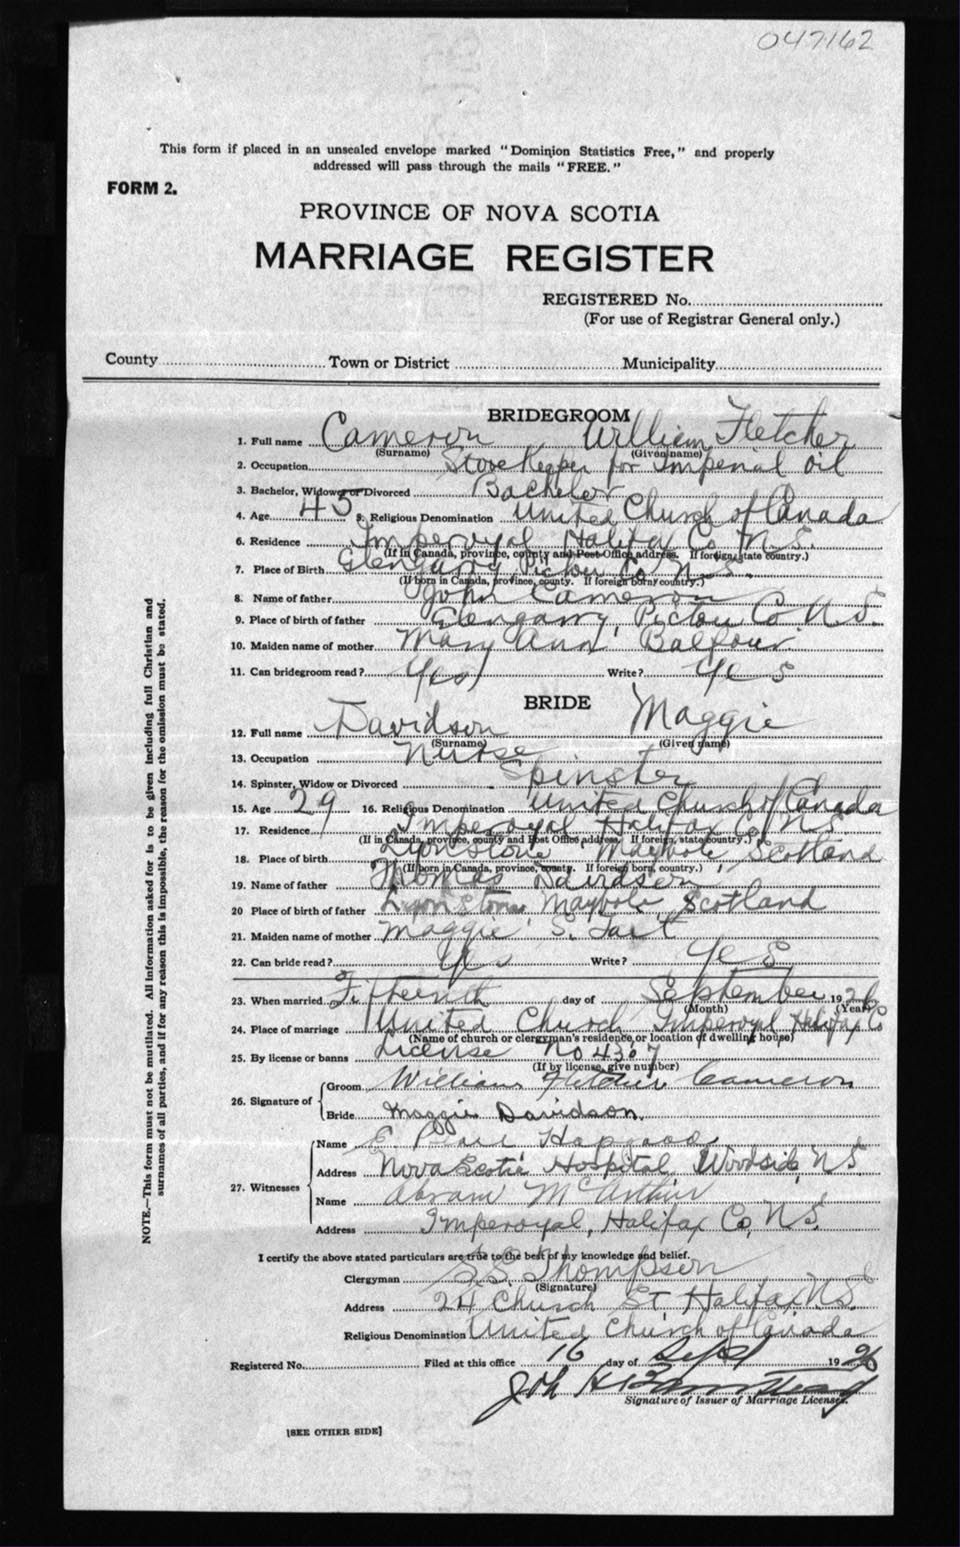 047162
This form if placed in an unsealed envelope marked "Dominion Statistics Free," and properly
addressed will pass through the mails "FREE."
FORM 2.
PROVINCE OF NOVA SCOTIA
MARRIAGE REGISTER
REGISTERED No.
(For use of Registrar General only.)
County Town or District Municipality
BRIDEGROOM
1. Full name Cameron William Fletcher
(Surname) (Given name)
2. Occupation Storekeeper for Imperial Oil
3. Bachelor, Widower or Divorced Bachelor
4. Age 45 5. Religious Denomination United Church of Canada
6. Residence Imperoyal Halifax Co N.S.
(If in Canada, province, county and Post Office address. If foreign, state country.)
7. Place of Birth Glengarry Pictou Co N.S.
(If born in Canada, province, county. If foreign born, country.)
8. Name of father John Cameron
9. Place of birth of father Glengarry, Pictou Co N.S.
10. Maiden name of mother Mary Ann Balfour
11. Can bridegroom read? Yes Write? Yes
BRIDE
12. Full name Davidson Maggie
(Surname) (Given name)
13. Occupation Nurse
14. Spinster, Widow or Divorced Spinster
15. Age 29 16. Religious Denomination United Church of Canada
17. Residence Imperoyal Halifax Co N.S.
(If in Canada, province, county and Post Office address. If foreign, state country.)
18. Place of birth Lyonstone Maybole Scotland
(If born in Canada, province, county. If foreign born, country.)
19. Name of father Thomas Davidson
20 Place of birth of father Lyonstone Maybole Scotland
21. Maiden name of mother Maggie S. Tait
22. Can bride read? Yes Write? Yes
23. When married Fifteenth day of September 1926
(Month) (Year)
24. Place of marriage United Church Imperoyal Halifax Co
(Name of church or clergyman's residence, or location of dwelling house)
25. By license or banns License No 4367
(If by license, give number)
26. Signature of
Groom William Fletcher Cameron
Bride Maggie Davidson
27. Witnesses
Name E. Hapgood
Address Nova Scotia Hospital, Woodside, N.S.
Name Abram McArthur
Address Imperoyal, Halifax Co, N.S.
I certify the above stated particulars are true to the best of my knowledge and belief.
Clergyman Thompson
(Signature)
Address 24 Church St Halifax N.S.
Religious Denomination United Church of Canada
Registered No. Filed at this office 16 day of Sept 1926
Signature of Issuer of Marriage Licenses.
[SEE OTHER SIDE]
NOTE.—This form must not be mutilated. All information asked for is to be given including full Christian and
surnames of all parties, and if for any reason this is impossible, the reason for the omission must be stated.